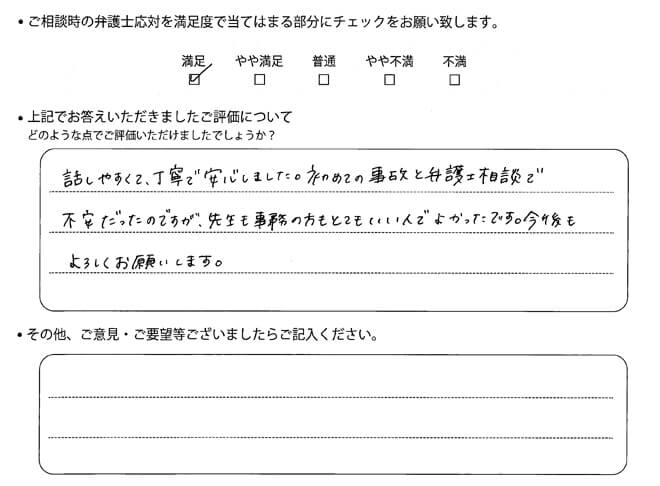 • ご相談時の弁護士応対を満足度で当てはまる部分にチェックをお願い致します。
満足 やや満足 普通 やや不満 不満
☑ □ □ □ □
• 上記でお答えいただきましたご評価について
どのような点でご評価いただけましたでしょうか？
話しやすくて、丁寧で安心しました。初めての事故と弁護士相談で
不安だったのですが、先生も事務の方もとてもいい人でよかったです。今後も
よろしくお願いします。
• その他、ご意見・ご要望等ございましたらご記入ください。